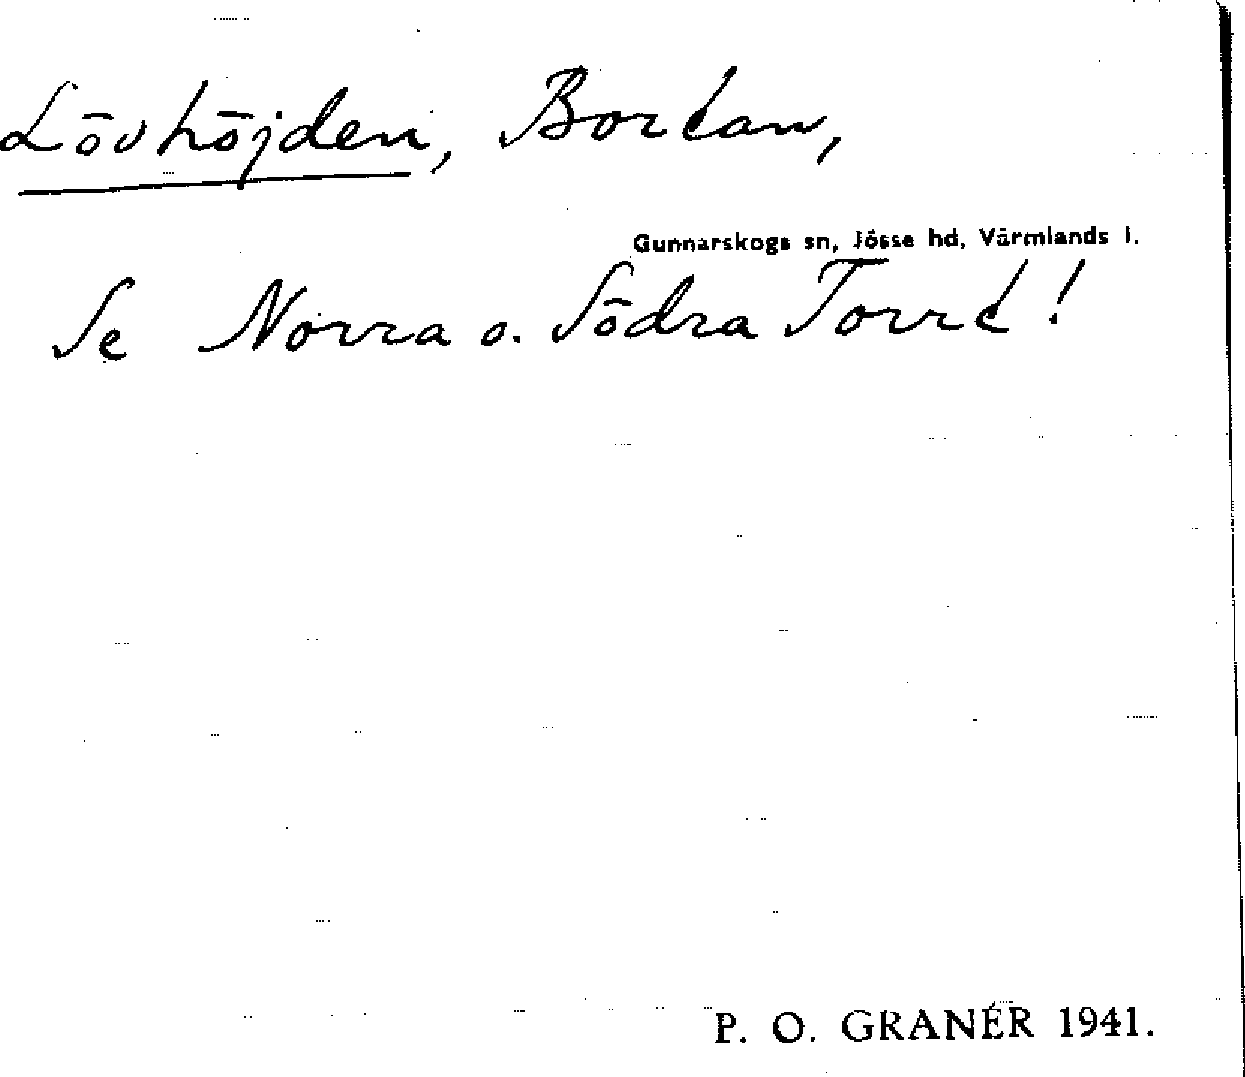 Lövhöjden, Bortan,
Gunnarskogs sn, Jösse hd, Värmlands l.
Se Norra o. Södra Torrt!
P. O. GRANÉR 1941.